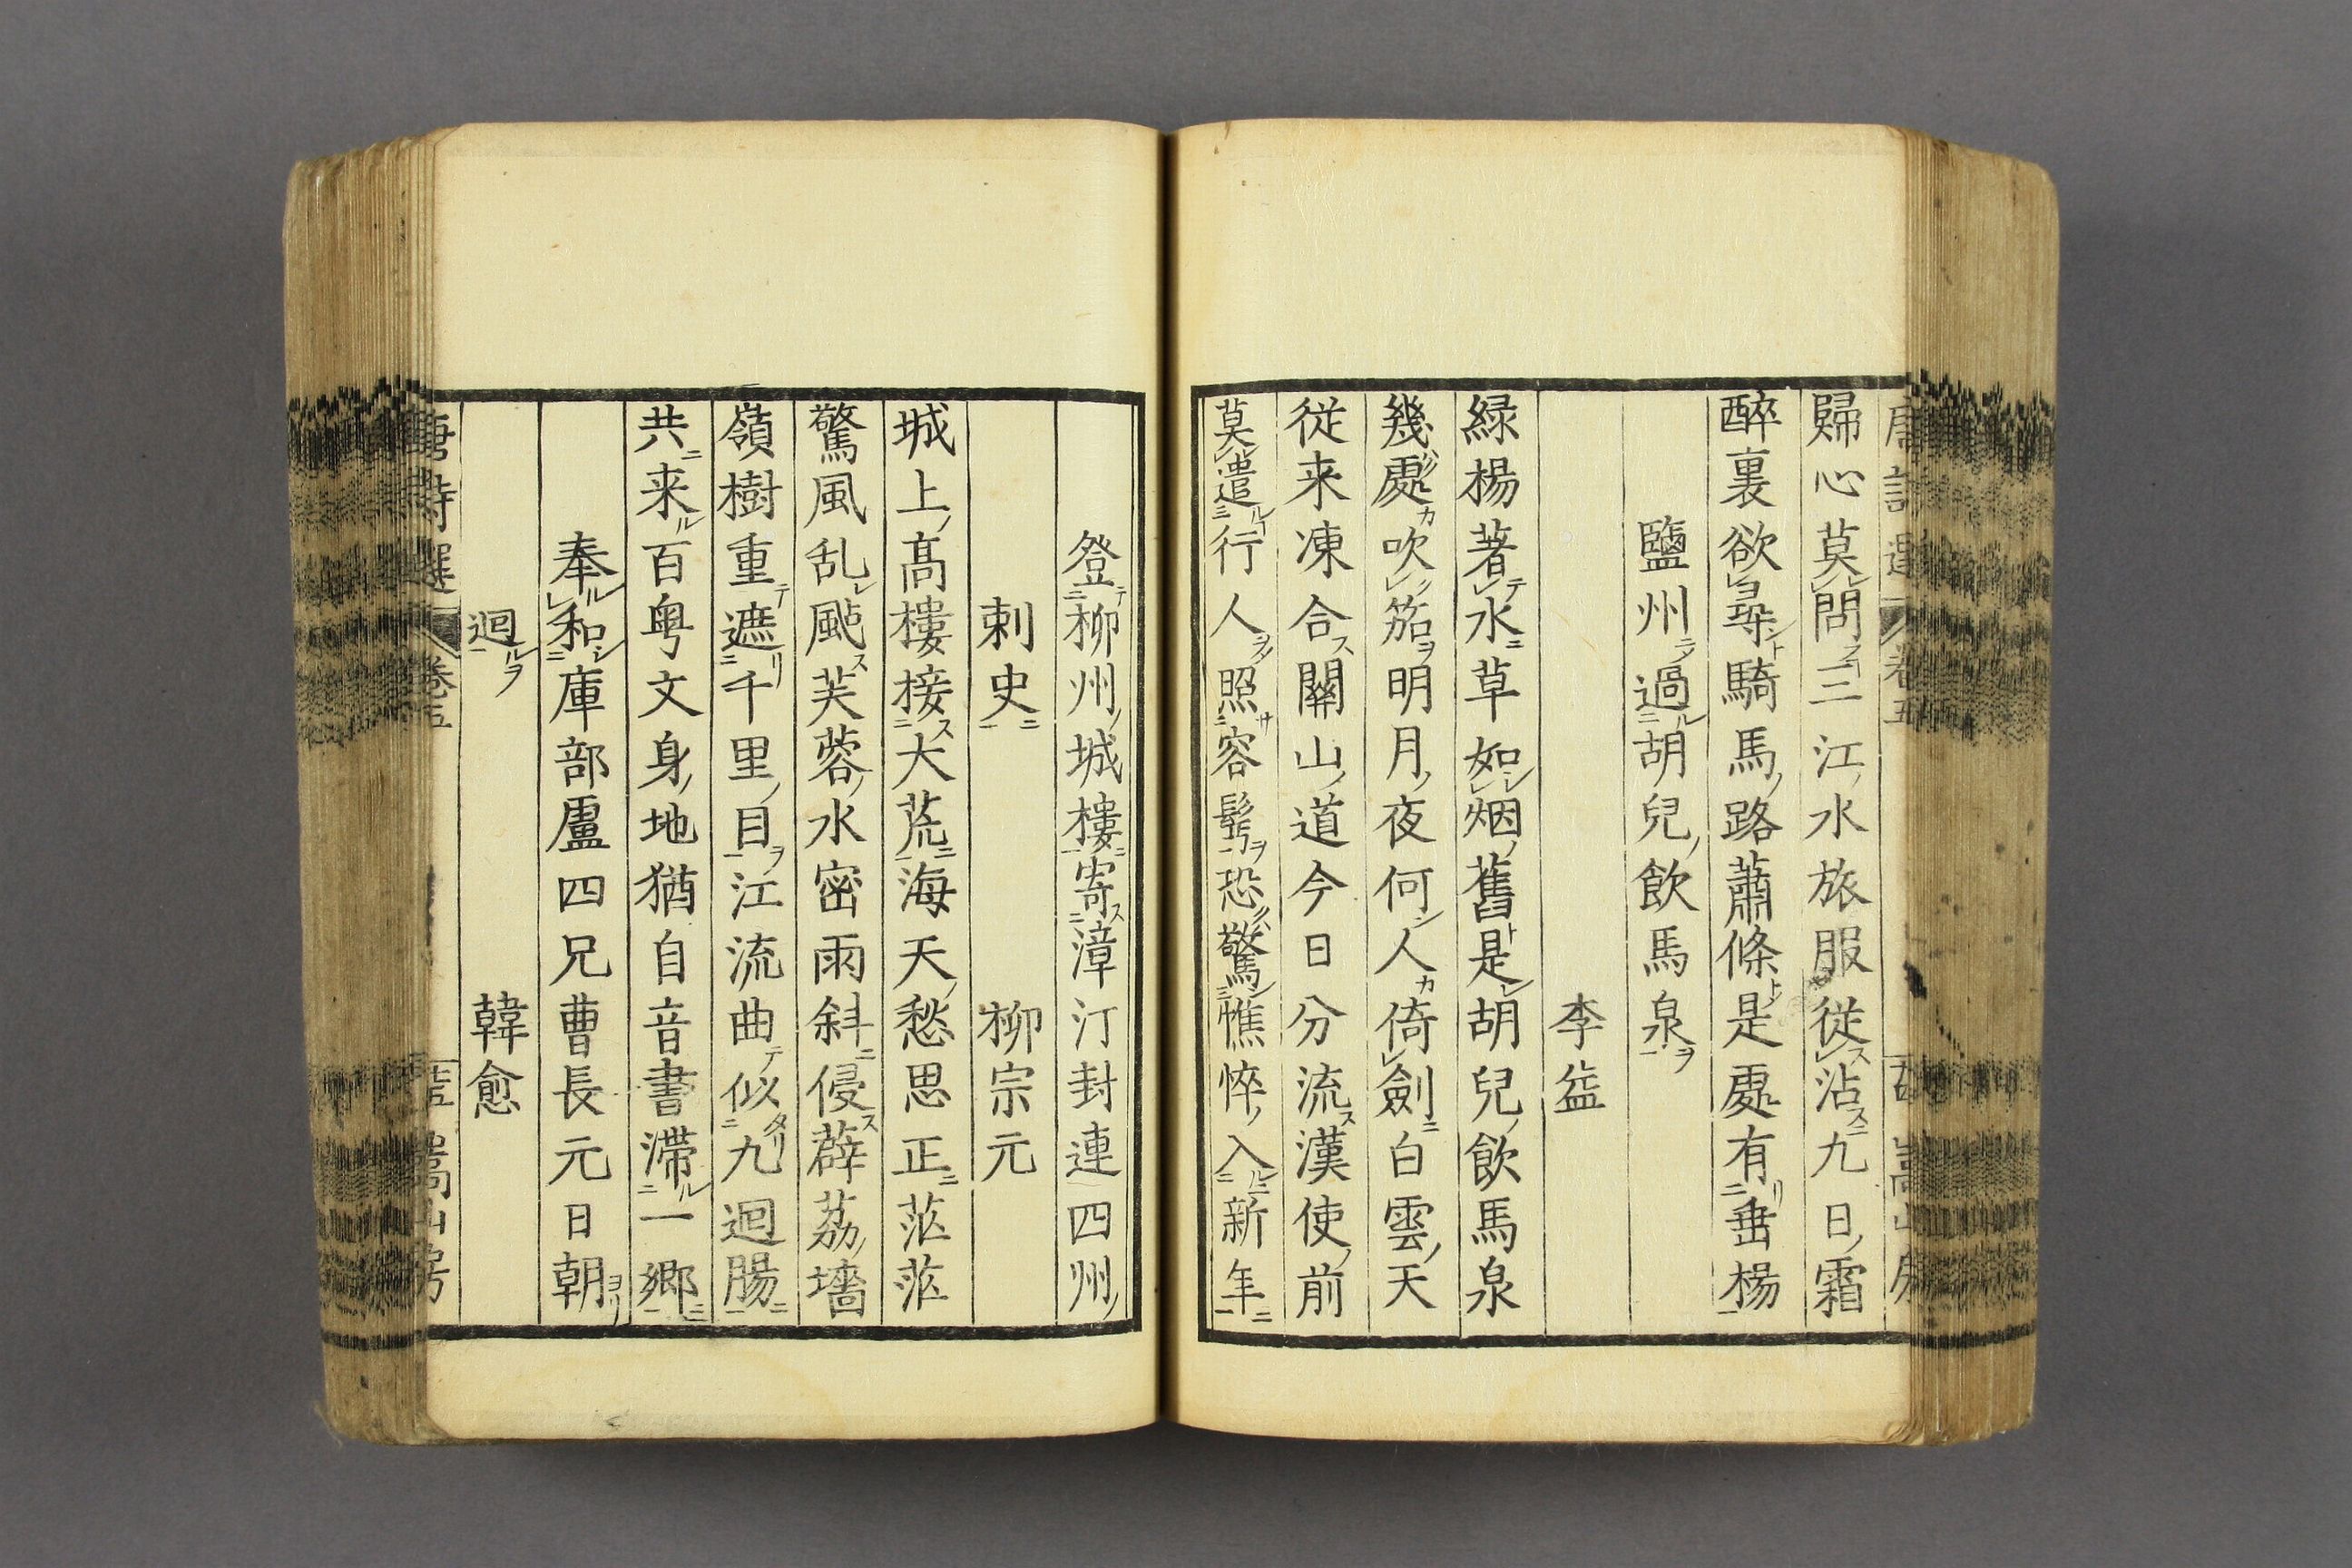 歸心莫問三江水旅服従沾九日霜
醉裏欲尋騎馬路蕭條是處有垂楊
鹽州過胡兒飲馬泉
李益
緑楊著水草如烟舊是胡兒飲馬泉
幾處吹笳明月夜何人倚劍白雲天
従来凍合關山道今日分流漢使前
莫遣行人照容鬂恐驚憔悴入新年
登柳州城樓寄漳汀封連四州
刺史 柳宗元
城上髙樓接大荒海天愁思正茫茫
驚風乱颭芙蓉水密雨斜侵薜荔墻
嶺樹重遮千里目江流曲似九迴腸
共来百粤文身地猶自音書滞一郷
奉和庫部盧四兄曹長元日朝
迴 韓愈
唐詩選 巻五 嵩山房